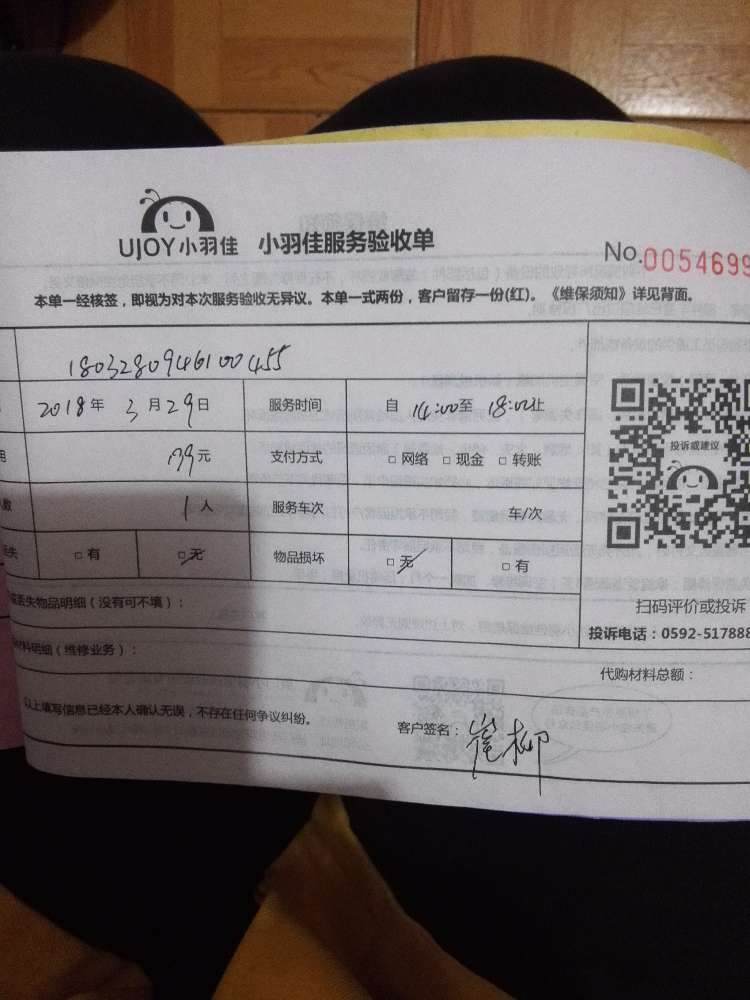 UJOY小羽佳 小羽佳服务验收单
No.0054699
本单一经核签，即视为对本次服务验收无异议。本单一式两份，客户留存一份(红)。《维保须知》详见背面。
1803280946100455
2018年3月29日 服务时间 自14:00至18:00止
元 支付方式 □网络 □现金 □转账
1人 服务车次 车/次
□有 □无 物品损坏 □无 □有
丢失物品明细（没有可不填）：
材料明细（维修业务）：
代购材料总额：
以上填写信息已经本人确认无误，不存在任何争议纠纷。
客户签名：崔柳
投诉或建议
扫码评价或投诉
投诉电话：0592-517888